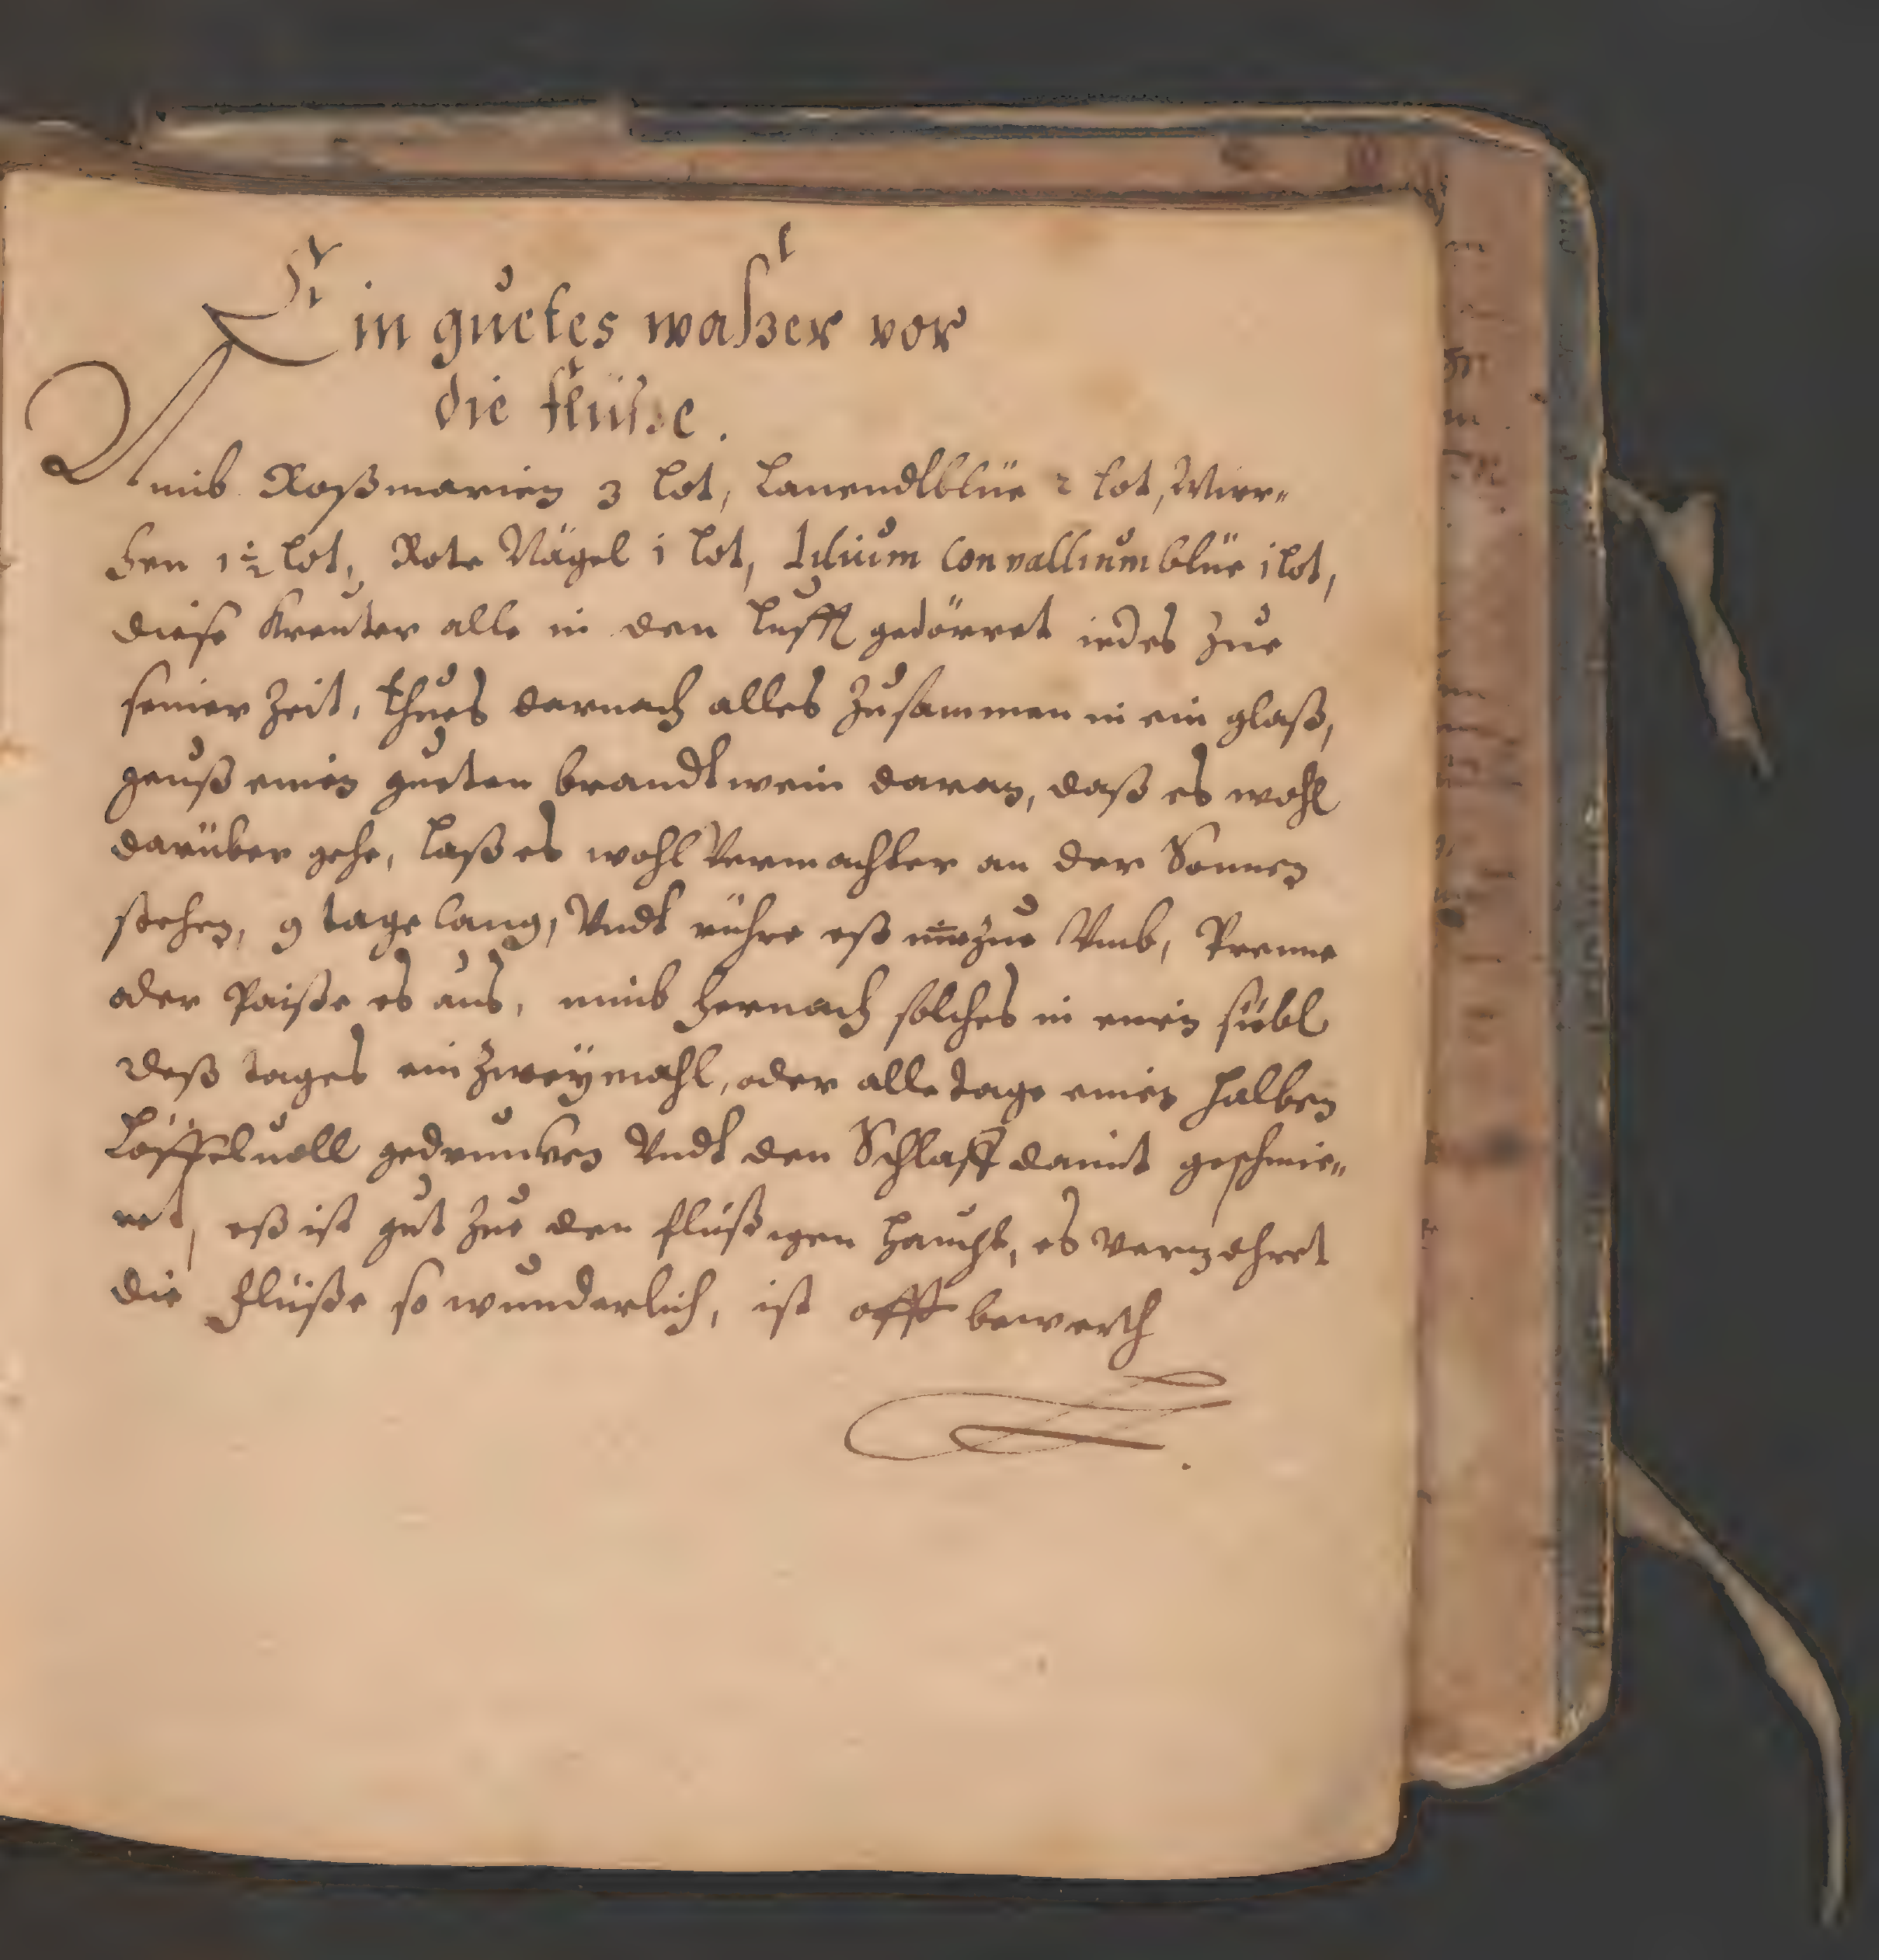 Ein guetes waßer vor
die flüße.
Nimb Roßmarien 3 lot, Lauendlblüe 2 lot, Mirr-
hen 1½ lot, Rote Nägel 1 lot, Lilium Convallium blüe 1 lot,
diese Kreuter alle in den Lufft gedörret iedes zue
seiner Zeit, thues darnach alles zusammen in ein glaß,
geuß einen gueten brandtwein daran, daß es wohl
darüber gehe, laß es wohl vermachter an der Sonnen
stehen, 9 tage lang, Vndt rühre eß Vmb, Prenne
oder Paiße es aus, nimb hernach solches in einen
deß tages ein zweymahl, oder alle tage einen halben
Löffeluoll gedruncken Vndt den Schlaff damit geschmie-
ret, eß ist gut zue den flüßigen haupt, es verzehret
die flüße so wunderlich, ist offt bewerth